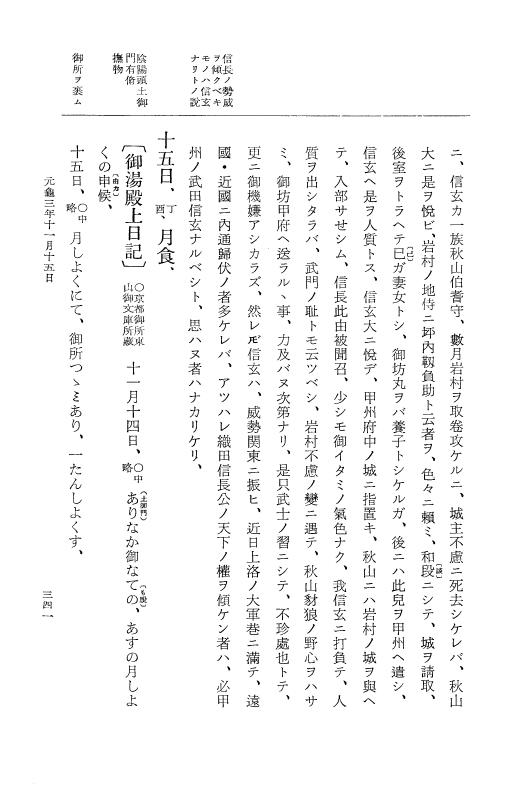 信長ノ勢威
ヲ傾クベキ
モノハ信玄
ナリトノ說
陰陽頭土御
門有脩
撫物
御所ヲ裹ム
ニ、信玄カ一族秋山伯耆守、數月岩村ヲ取卷攻ケルニ、城主不慮ニ死去シケレバ、秋山
大ニ是ヲ悅ビ、岩村ノ地侍ニ坪內靱負助ト云者ヲ、色々ニ賴ミ、和段(談)ニシテ、城ヲ請取、
後室ヲトラヘテ巳(己)ガ妻女トシ、御坊丸ヲバ養子トシケルガ、後ニハ此兒ヲ甲州ヘ遣シ、
信玄ヘ是ヲ人質トス、信玄大ニ悅デ、甲州府中ノ城ニ指置キ、秋山ニハ岩村ノ城ヲ與ヘ
テ、入部サせシム、信長此由被聞召、少シモ御イタミノ氣色ナク、我信玄ニ打負テ、人
質ヲ出シタラバ、武門ノ耻トモ云ツベシ、岩村不慮ノ變ニ遇テ、秋山豺狼ノ野心ヲハサ
ミ、御坊甲府ヘ送ラルヽ事、力及バヌ次第ナリ、是只武士ノ習ニシテ、不珍處也トテ、
更ニ御機嫌アシカラズ、然レ𪜈信玄ハ、威勢関東ニ振ヒ、近日上洛ノ大軍巷ニ滿テ、遠
國・近國ニ內通歸伏ノ者多ケレバ、アツハレ織田信長公ノ天下ノ權ヲ傾ケン者ハ、必甲
州ノ武田信玄ナルベシト、思ハヌ者ハナカリケリ、
十五日、丁酉、月食、
〔御湯殿上日記〕○京都御所東山御文庫所藏 十一月十四日、○中略 ありなか(土御門)御なての(も脫)、あすの月しよ
くの申(由カ)候、
十五日、○中略 月しよくにて、御所つゝミあり、一たんしよくす、
元龜三年十一月十五日
三四一